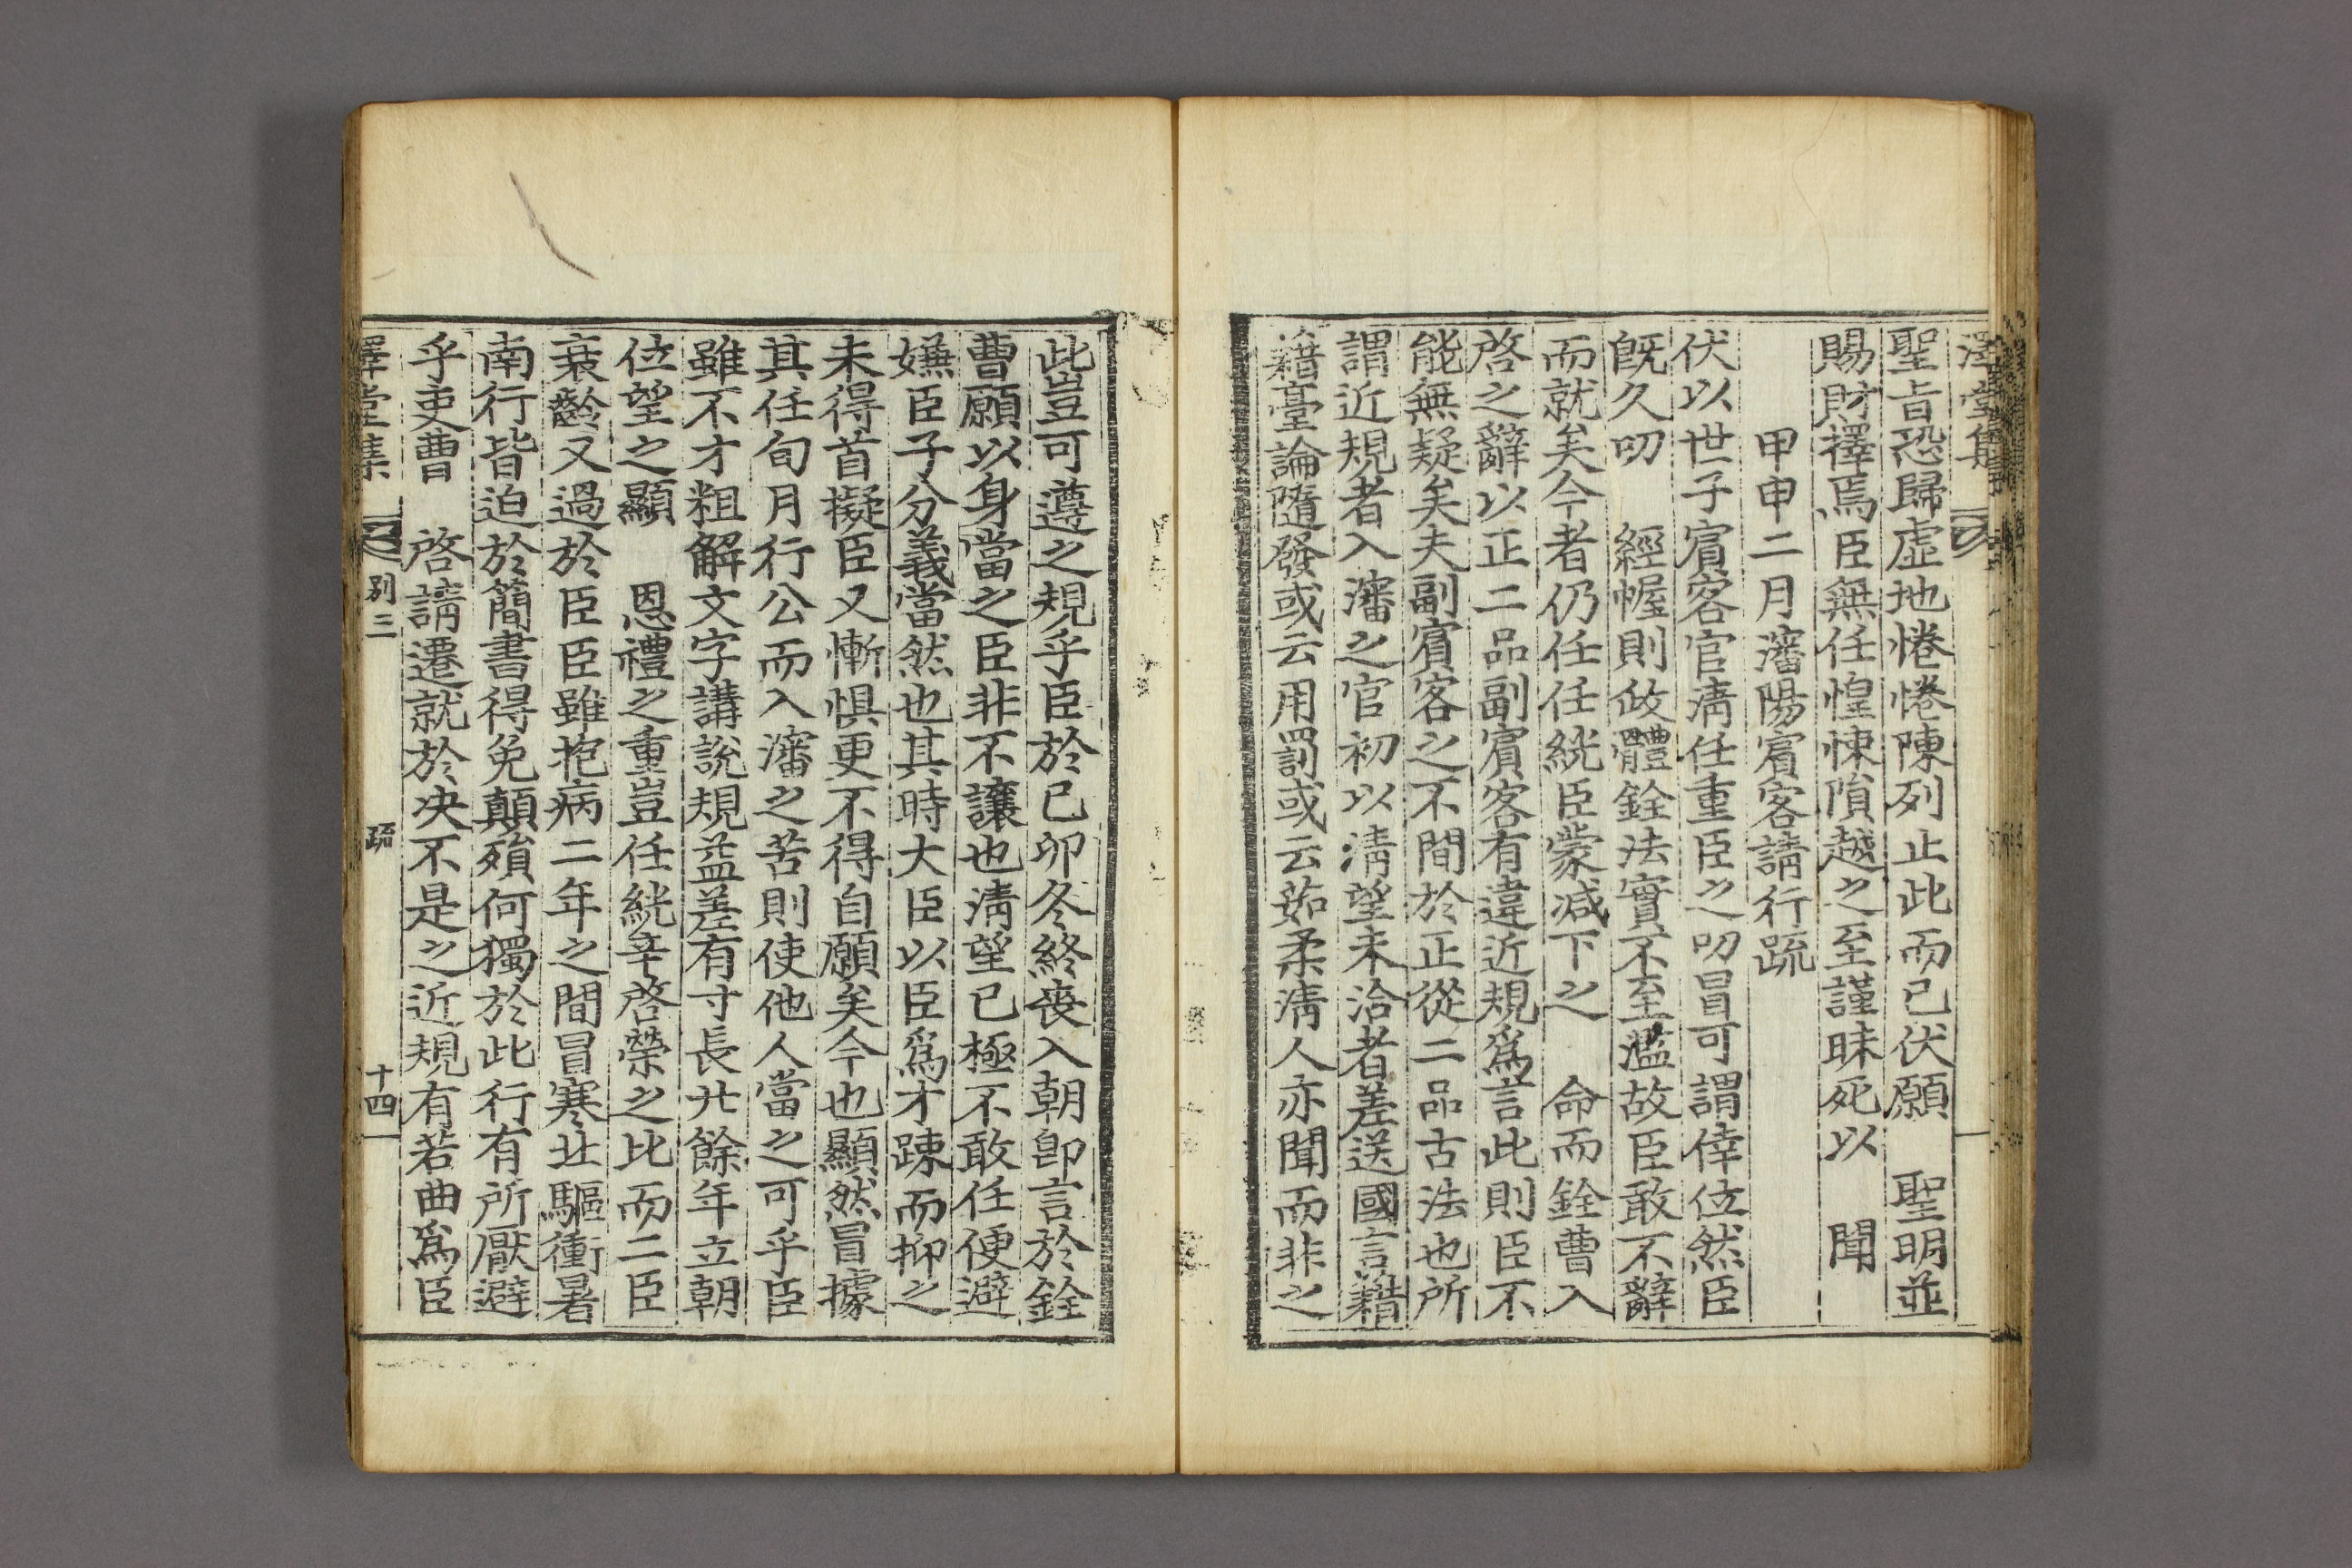 澤堂集
聖旨恐歸虛地惓惓陳列止此而已伏願　聖明並
賜財擇焉臣無任惶悚隕越之至謹昧死以　聞
甲申二月瀋陽賓客請行疏
伏以世子賓客官淸任重臣之叨冒可謂倖位然臣
旣久叨　經幄則政體銓法實不至濫故臣敢不辭
而就矣今者仍任任絖臣蒙减下之　命而銓曹入
啓之辭以正二品副賓客有違近規爲言此則臣不
能無疑矣夫副賓客之不間於正從二品古法也所
謂近規者入瀋之官初以淸望未洽者差送國言藉
藉臺論隨發或云用罰或云茹柔淸人亦聞而非之
此豈可遵之規乎臣於己卯冬終喪入朝卽言於銓
曹願以身當之臣非不讓也淸望已極不敢任便避
嫌臣子分義當然也其時大臣以臣爲才踈而抑之
未得首擬臣又慚惧更不得自願矣今也顯然冒據
其任旬月行公而入瀋之苦則使他人當之可乎臣
雖不才粗解文字講說規益差有寸長廿餘年立朝
位望之顯　恩禮之重豈任絖辛啓榮之比而二臣
衰齡又過於臣臣雖抱病二年之間冒寒北驅衝暑
南行皆迫於簡書得免顚殞何獨於此行有所厭避
乎吏曹　啓請遷就於决不是之近規有若曲爲臣
澤堂集　別三　疏　十四